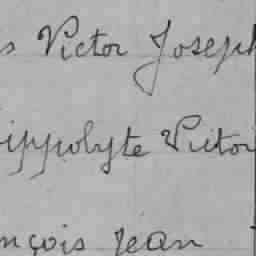 s Victor Joseph
ippolyte Victor
nçois Jean